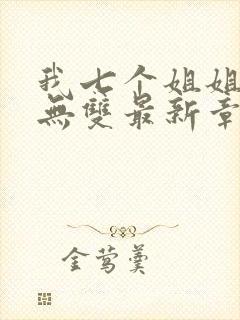 我七个姐姐
無雙最新章
金莺羹